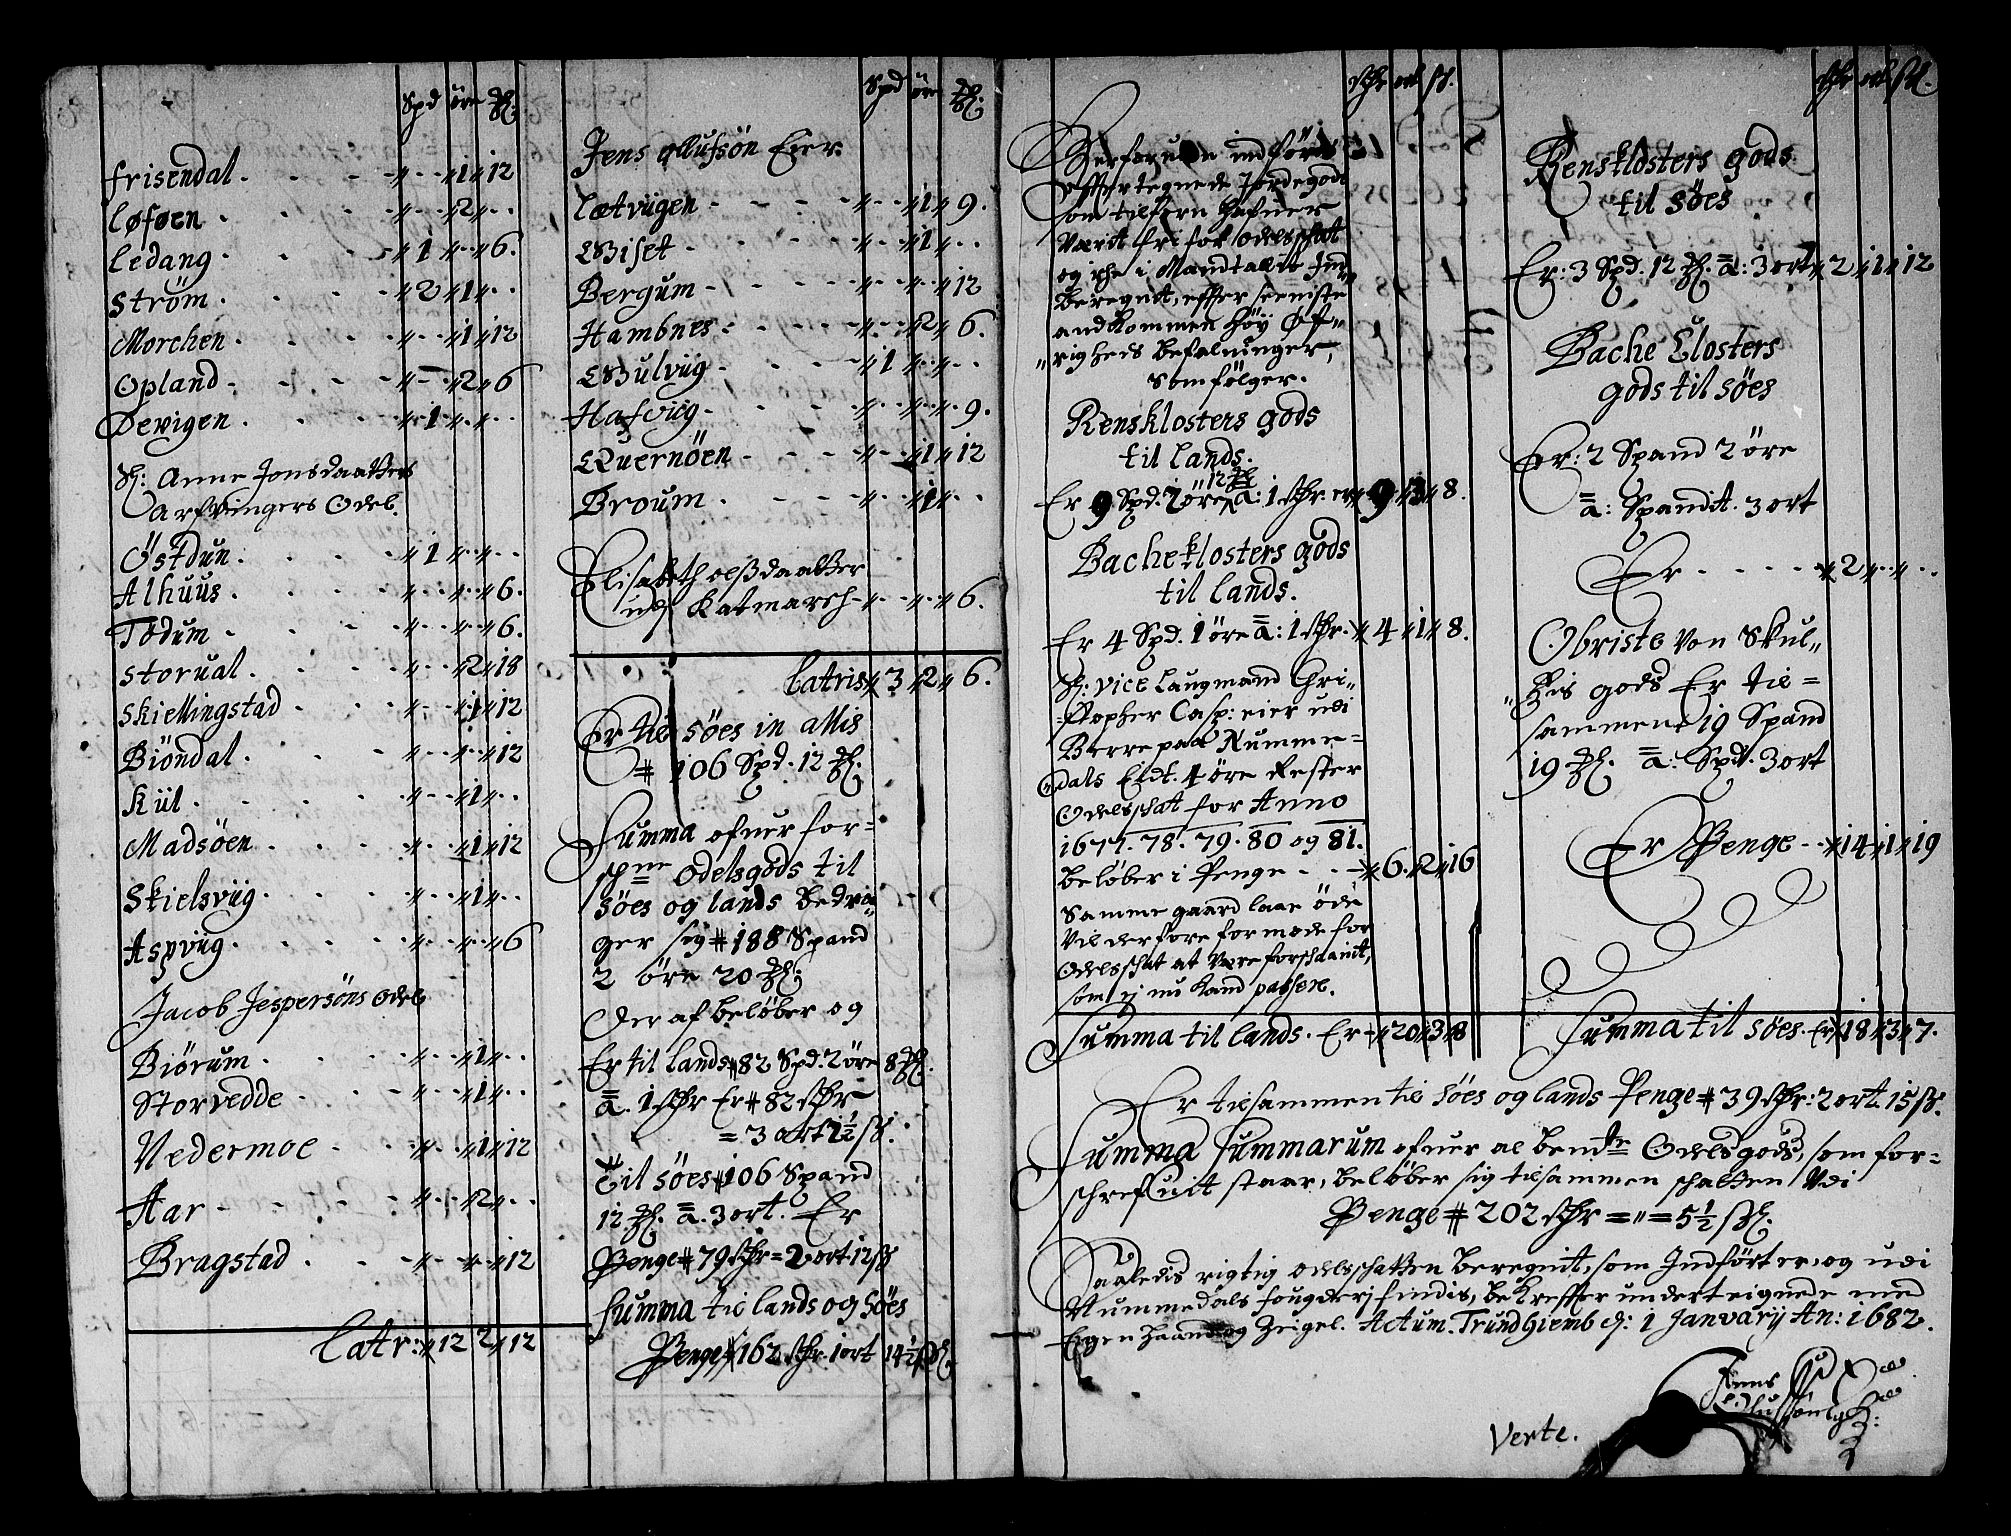 Spd öre
frisendal . . . - „ - . „ 1 „ 12
Løføen . . . - „ - . „ 2 „ . .
Ledang . . . „ 1 „ . „ 6.
Ström . . . „ 2 „ 1 „ . .
Morchen . . . „ . . „ 1 „ 12
Opland . . . „ - . „ 2 „ 6
Devigen . . . „ 1 „ . „ . .
Sl: Anne Jonsdaatters
arfvingers Odel.
Östdun . . . „ 1 „ . „ . .
Alhuus . . . „ . . „ . „ 6.
Tödum . . . „ . . „ . „ 6.
Storual . . . „ . . „ 2 „ 18
Skiellingstad . . „ . . „ 1 „ 12
Biöndal . . . „ . . „ . „ 12
Kiil . . . „ . . „ 1 „ . .
Madsöen . . . „ . . „ 1 „ 12
Skielsviig . . . „ . . „ 1 „ . .
Aspviig . . . „ . . „ . „ 6
Jacob Jespersöns Odel
Biörum . . . „ . . „ 1 „ . .
Storvedde . . . „ . . „ 1 „ . .
Nedermoe . . „ . . „ 1 „ 12
Aar - . . . „ . . „ 2 „ . .
Bragstad . . . „ . . „ . „ 12
Latr: „ 12 „ 2 „ 12
Spd öre
Jens Ollufsön Eier
Letviigen - - - „ . . „ 1 „ 9.
Wiset - - - „ . . „ 1 „ . .
Bergum - - - „ . . „ . „ 12
Hambnes - - - „ . . „ 2 „ 6.
Wulviig - - - „ 1 „ . „ . .
Hafviig - - - „ . . „ . „ 9.
Quernöen - - - „ . . „ 1 „ 12
Broum - - - „ . . „ 1 „ . .
Elisabeth olßdaatter
udj Katmarch - „ . . „ . „ 6.
Latris „ 3 „ 2 „ 6.
Er til söes in allis
# 106 Spd. 12
Summa ofuer for=
schne Odelsgods til
söes og lands bedra=
ger sig # 188 Spand
2 öre 20
Der af beløber og
Er til lands # 82 Spd. 2 öre 8
a. 1 Er # 82
= 3 ort 1½ ß.
Til söes # 106 Spand
12 a. 3 ort. Er
Penge # 79 = 2 ort. 12 ß
Summa til lands og Söes
Penge # 162 1 ort 14½ ß
ort ß.
indförte
effter tegnede Jordegods
som tilforn hafuer
Værit fri for Odelsschat
og iche i Mandtallit Ind=
beregnit, effter seeniste
andkommen höy Öf=
„righeds befalninger,
som fölger.
Rensklosters gods
til lands.
12
Er 9 Spd. 2 öre a: 1 er „ 9 „ 3 „ 8.
Bacheklosters gods
til lands.
Er 4 Spd. 1 öre a: 1 „ 4 „ 1 „ 8.
Sl: vice laugmand Chri=
=stopher Casp: eier udi
Berre paa Numme=
dals Eidt. 4 öre Rester
Odelsschat for Anno
1677. 78. 79. 80 og 81.
beløber i Penge - . - „ 6 „ 2 „ 16
Samme gaard laae öde
Vil derfore formode for
Odelsschat at være forschaanit,
som ej nu kand passere.
Summa til lands. Er - „ 20 „ 3 „ 8
ort ß.
Rensklosters gods
til söes
Er: 3 Spd. 12 a: 3 ort „ 2 „ 1 „ 12
Bache Closters
gods til söes
Er: 2 Spand 2 öre
a: Spandit. 3 ort
Er - - - - „ 2 „ . „ . .
Obriste Von Skul„
„tzis gods Er til=
sammen 19 Spand
19 a: Spd. 3 ort
Er Penge - „ 14 „ 1 „ 19
Summa til söes. Er „ 18 „ 3 „ 7.
Er tilsammen til söes og lands Penge # 39 : 2 ort. 15 ß.
Summa Summarum ofuer al bemte Odelsgods, som for=
schrefuit staar, beløber sig tilsammen schatten Udi
Penge # 202 = „ = 5½ ß.
Saaledis rigtig odelsschatten beregnit, som Indfört er, og udi
Nummedals fougderj findis, bekreffter undertegnede med
Egen haand og Zeigel. Actum. Trundhiemb d: 1 Janvarij An: 1682.
Verte.